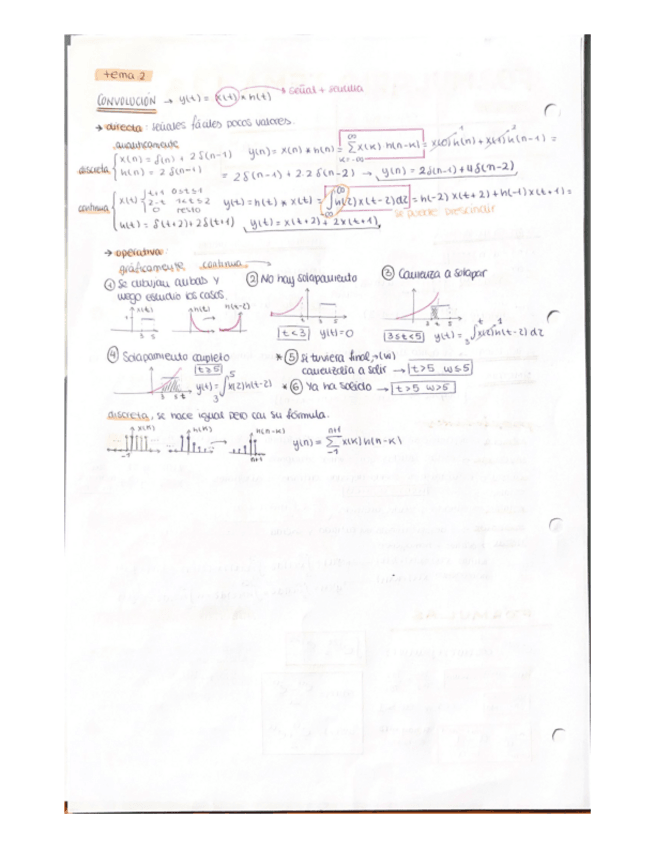 tema 2
CONVOLUCIÓN → y(t) = x(t) * h(t) → señal + sencilla
→ directa: señales fáciles pocos valores.
analíticamente
discreta { x(n) = δ(n) + 2δ(n-1)   y(n) = x(n) * h(n) = ∞ Σ k=-∞ x(k) h(n-k) = x(0)h(n) + x(1)h(n-1) =
h(n) = 2δ(n-1)   = 2δ(n-1) + 2·2δ(n-2) → y(n) = 2δ(n-1) + 4δ(n-2)
continua { x(t) { t+1 0≤t≤1   2-t 1≤t≤2   0 resto   y(t) = h(t) * x(t) = ∫ ∞ -∞ h(τ)x(t-τ)dτ = h(-2) x(t+2) + h(-1) x(t+1) =
se puede prescindir
h(t) = δ(t+2) + 2δ(t+1)   y(t) = x(t+2) + 2x(t+1)
→ operativa:
gráficamente continua
① Se dibujan ambas y luego estudio los casos.
x(t) 3 5   h(t)   h(t-τ)
② No hay solapamiento
t 3 5
t<3   y(t)=0
③ Comienza a solapar
3 t 5
3≤t<5   y(t) = ∫ t 3 x(τ)h(t-τ)dτ
④ Solapamiento completo
3 5 t
t≥5
y(t) = ∫ 5 3 x(τ)h(t-τ)
* ⑤ si tuviera final, →(w) comenzaría a salir → t>5 w≤5
* ⑥ Ya ha salido → t>5 w>5
discreta, se hace igual pero con su fórmula.
x(n) -1   h(k)   h(n-k) n+1   y(n) = n+1 Σ -1 x(k)h(n-k)